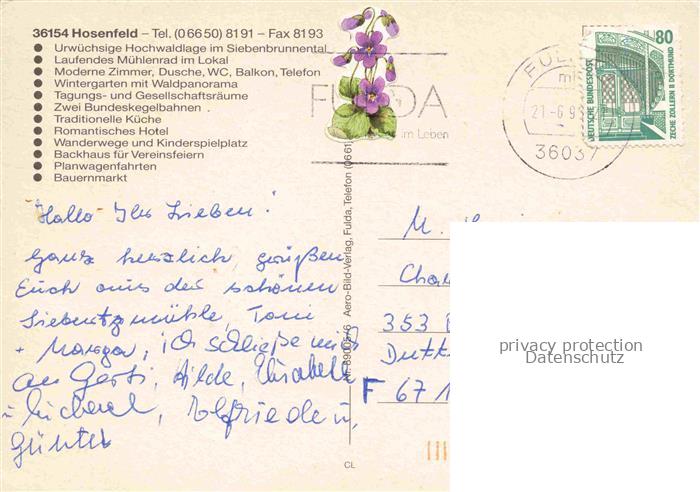 36154 Hosenfeld – Tel. (0 66 50) 81 91 – Fax 81 93
● Urwüchsige Hochwaldlage im Siebenbrunnental
● Laufendes Mühlenrad im Lokal
● Moderne Zimmer, Dusche, WC, Balkon, Telefon
● Wintergarten mit Waldpanorama
● Tagungs- und Gesellschaftsräume
● Zwei Bundeskegelbahnen .
● Traditionelle Küche
● Romantisches Hotel
● Wanderwege und Kinderspielplatz
● Backhaus für Vereinsfeiern
● Planwagenfahrten
● Bauernmarkt
Hallo Ihr Lieben!
Ganz herzlich grüßen
Euch aus der schönen
Siebertzmühle, Toni
+ Marga, ich schließe mich
an Gerti, Hilde, Elisabeth
Michael, Elfriede u.
Günter
FULDA
im Leben
FUL
21.-6.9
36037
80
DEUTSCHE BUNDESPOST
ZECHE ZOLLERN II DORTMUND
Aero-Bild-Verlag, Fulda, Telefon (0661
CL
M.
Cha
353
F 67 1
privacy protection
Datenschutz